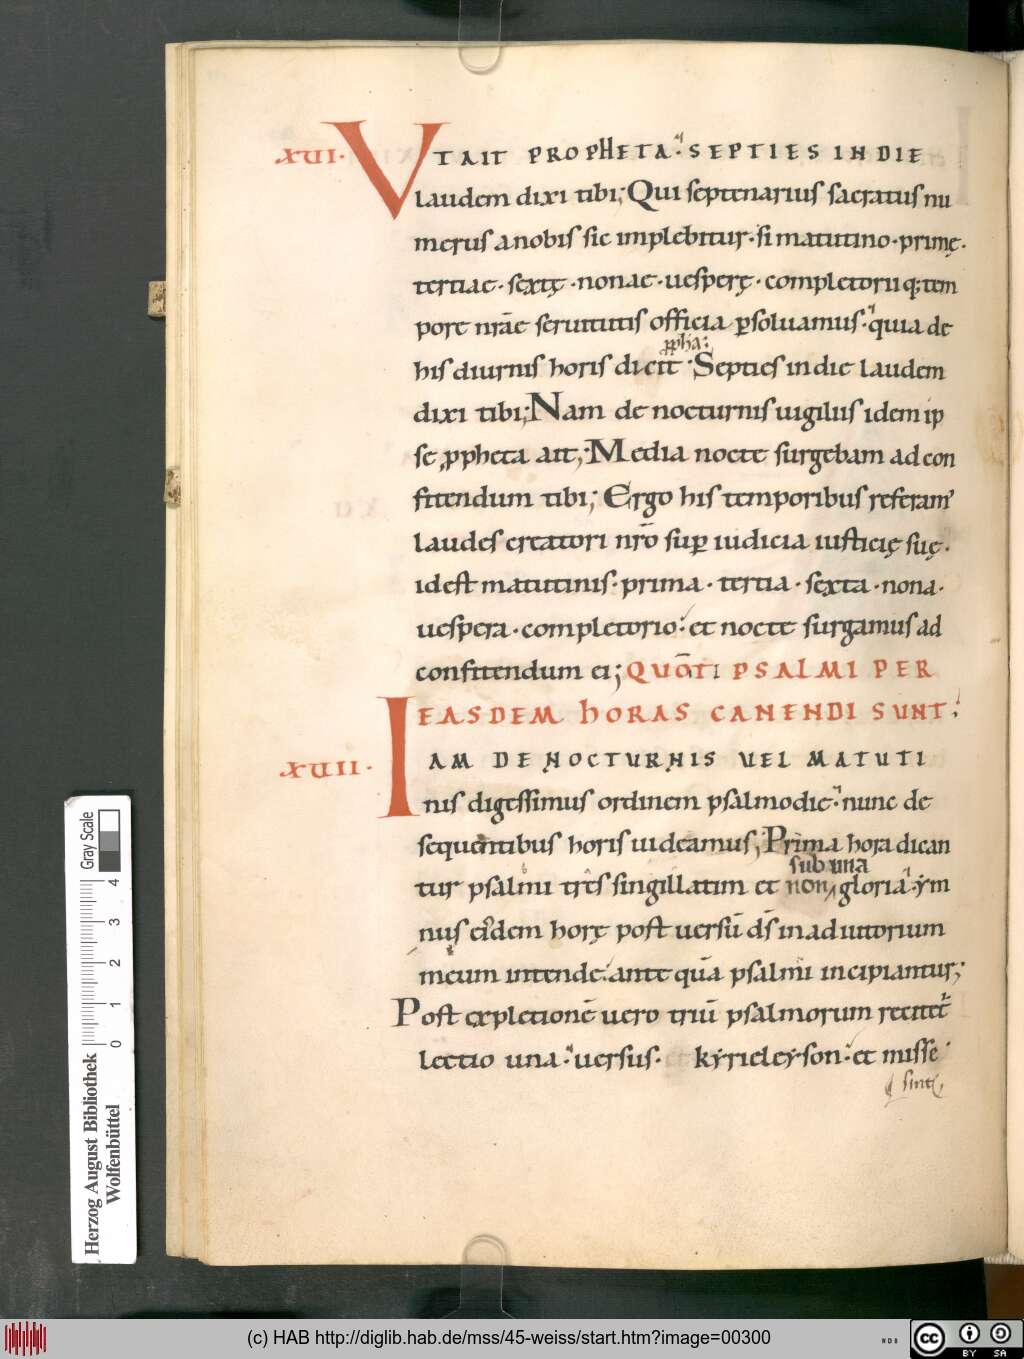 XVI. VT AIT PROPHETA. SEPTIES IN DIE
laudem dixi tibi; Qui septenarius sacratus nu
merus a nobis sic implebitur. si matutino. primę.
tertiae. sextę. nonae. uesperę. completorii q; tem
pore nr̄ae seruitutis officia ꝑsoluamus. quia de
ꝓpha:
his diurnis horis dicit. Septies in die laudem
dixi tibi; Nam de nocturnis uigiliis idem ip
se ꝓpheta ait; Media nocte surgebam ad con
fitendum tibi; Ergo his temporibus referam'
laudes creatori nr̄o suꝑ iudicia iusticię suę.
id est matutinis. prima. tertia. sexta. nona.
uespera. completorio. et nocte surgamus ad
confitendum ei; QUOT̄I PSALMI PER
EASDEM HORAS CANENDI SUNT.
XVII. IAM DE NOCTURNIS VEL MATUTI
nis digessimus ordinem psalmodie. nunc de
sequentibus horis uideamus; Prima hora dican
sub una
tur psalmi tres singillatim et non gloria. ym
nus eiꝰdem horę post uersū ds̄ in adiutorium
meum intende. ante quā psalmi incipiantur;
Post expletionē uero triū psalmorum recitet̄
lectio una. uersus. kyrieleyson. et misse
sint
Herzog August Bibliothek
Wolfenbüttel
Gray Scale
0 1 2 3 4
(c) HAB http://diglib.hab.de/mss/45-weiss/start.htm?image=00300
WDB
cc BY SA